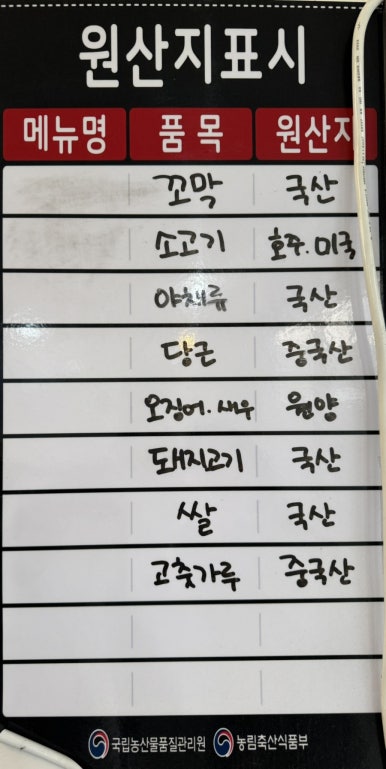 원산지표시
메뉴명 품목 원산지
꼬막 국산
소고기 호주.미국
야채류 국산
당근 중국산
오징어.새우 원양
돼지고기 국산
쌀 국산
고춧가루 중국산
국립농산물품질관리원 농림축산식품부